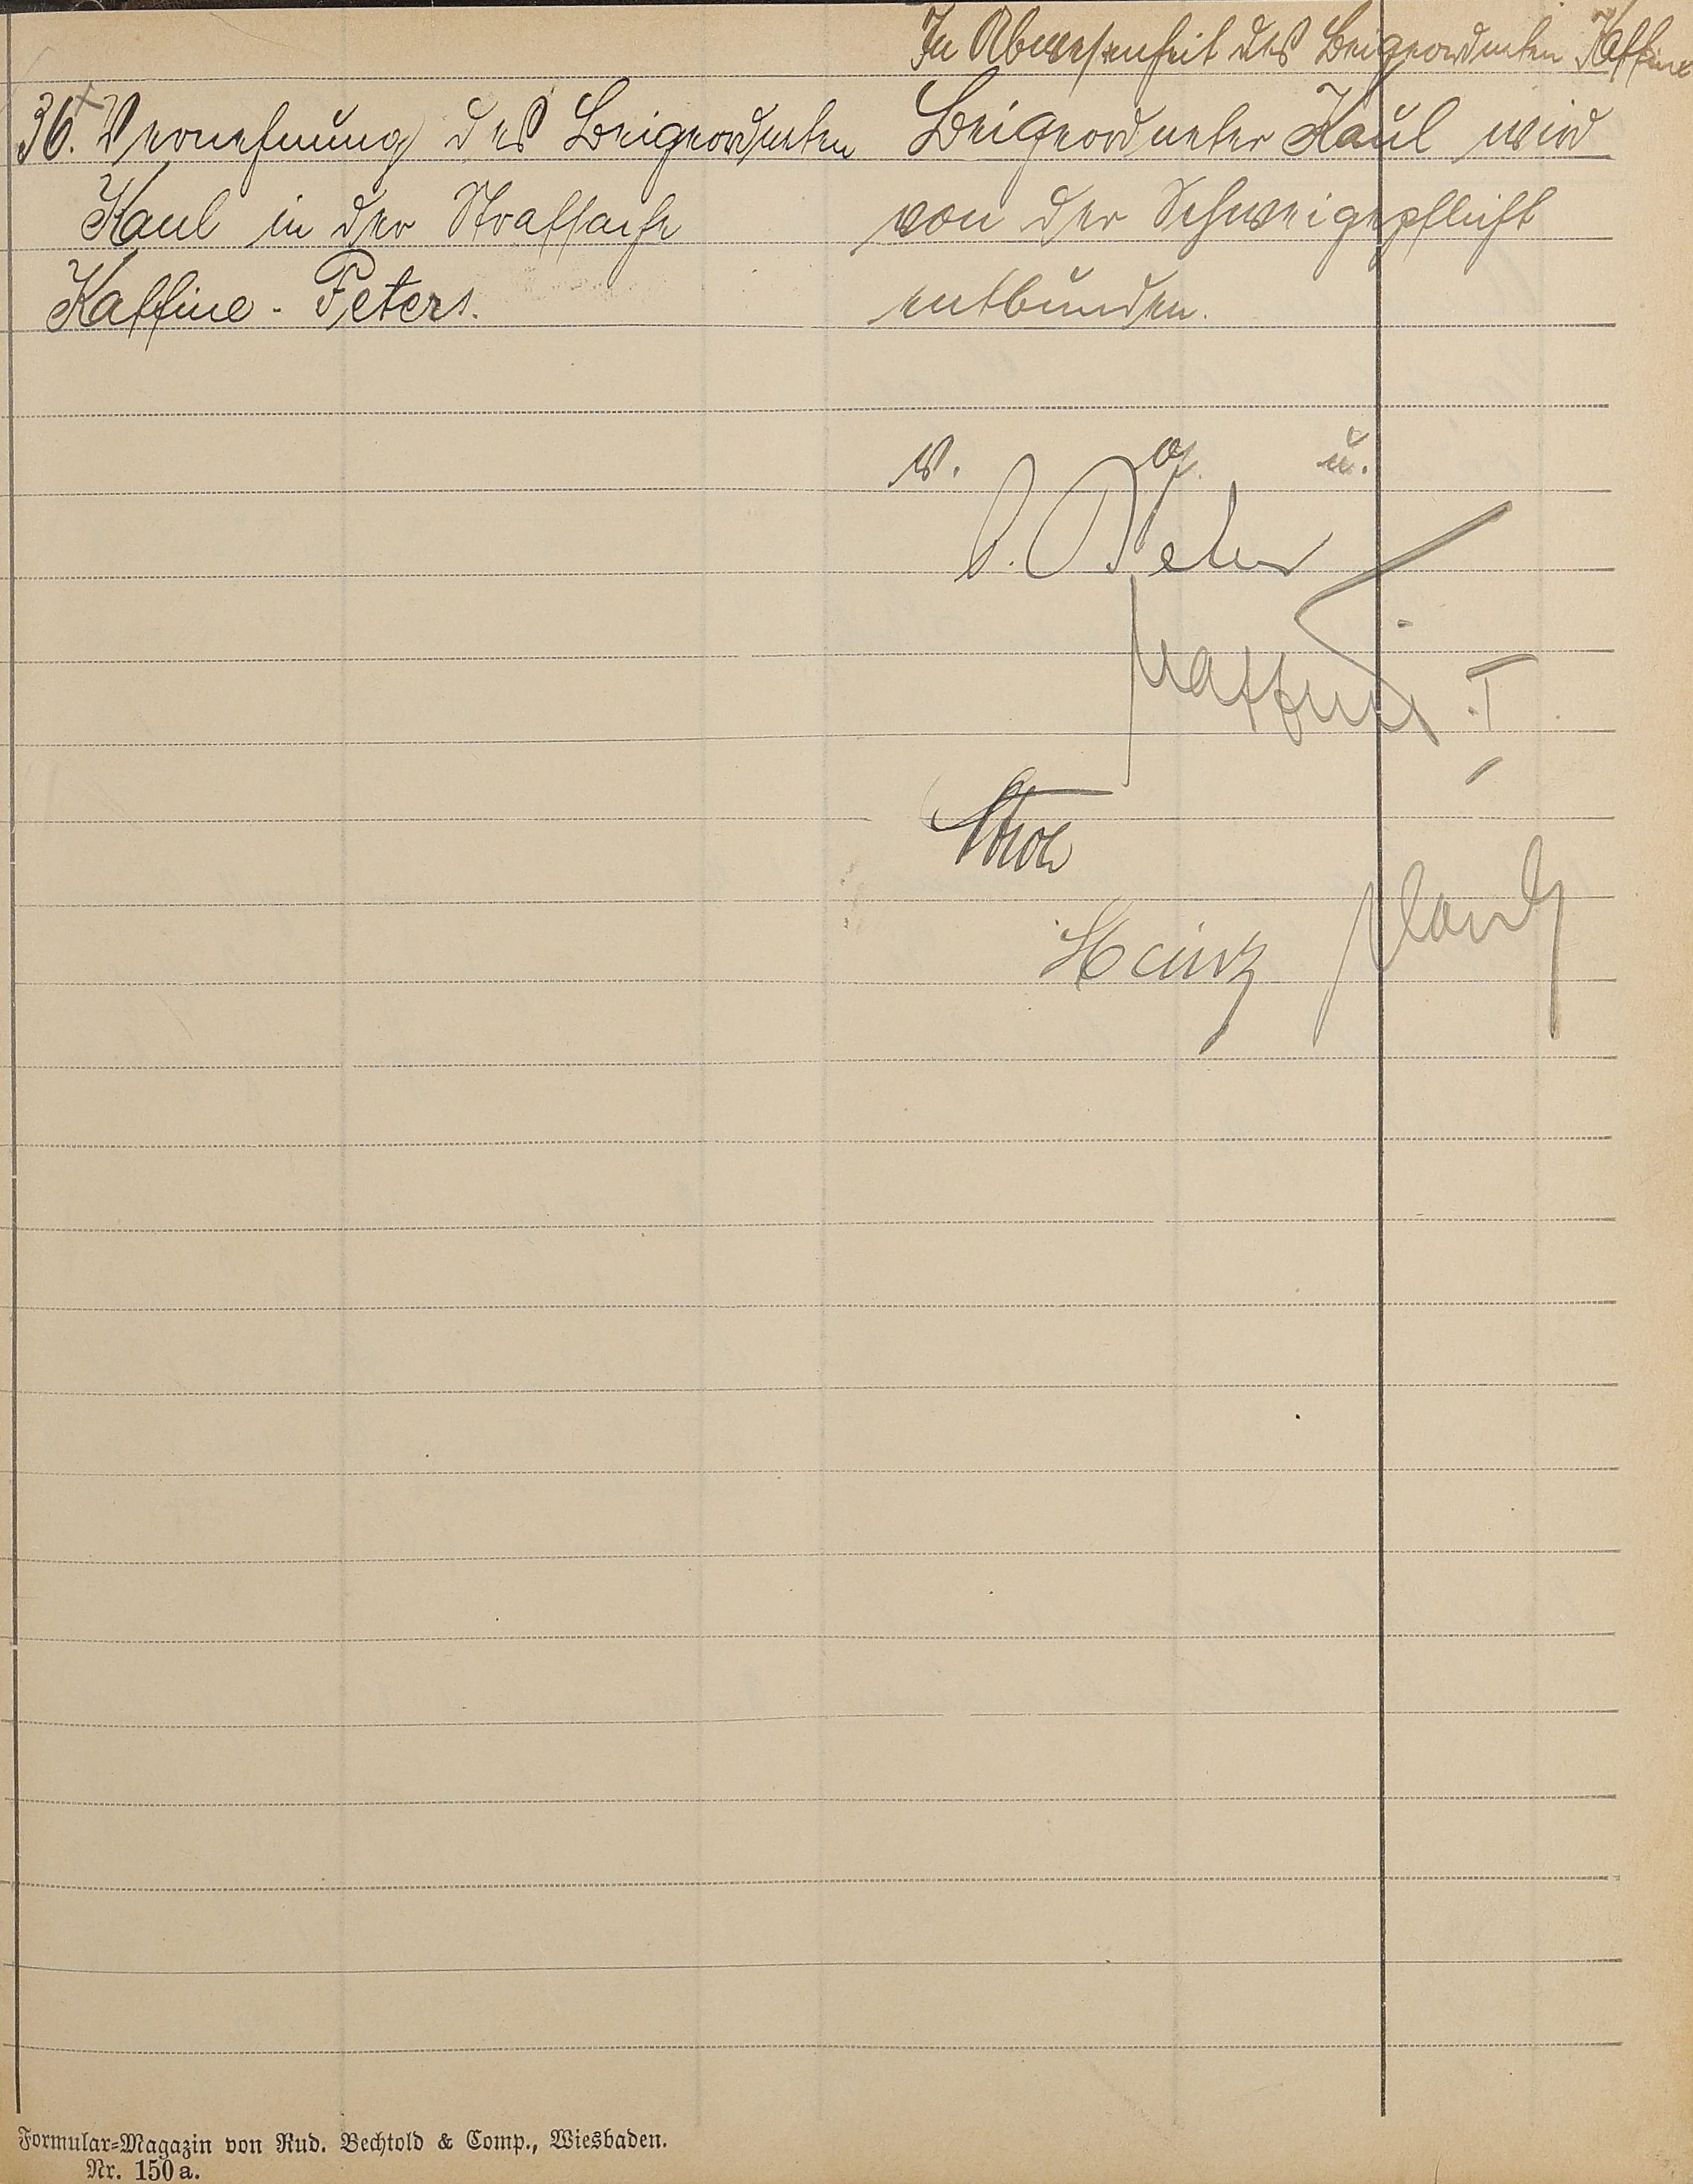 In Abwesenheit des Beigeordneten Kaffine
36. Vernehmung des Beigeordneten
Kaul in der Strafsache
Kaffine - Peters.
Beigeordneter Kaul wird
von der Schweigepflicht
entbunden.
v. g. u.
Kaffine I
Stroh
Heinz
Formular=Magazin von Rud. Bechtold & Comp., Wiesbaden.
Nr. 150a.